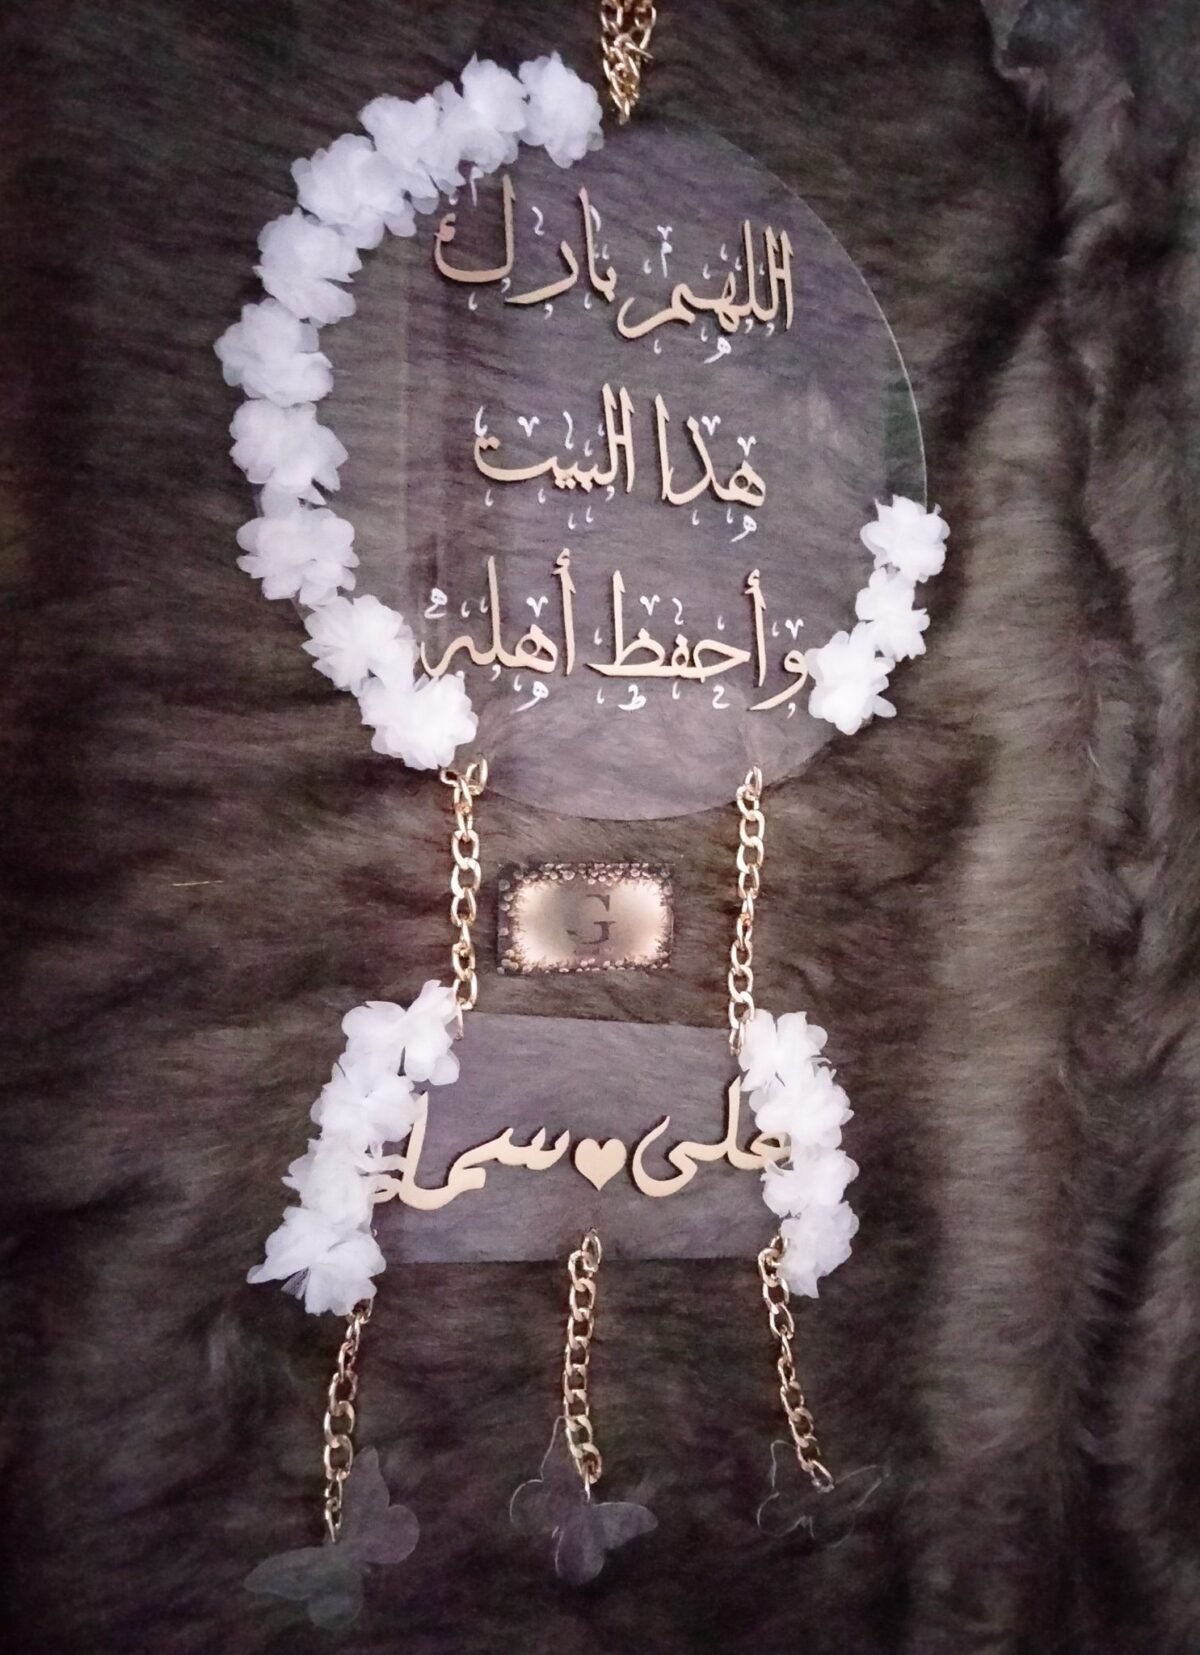 اللهم بارك
هدا البيت
وأحفظ أهله
G
على ♥